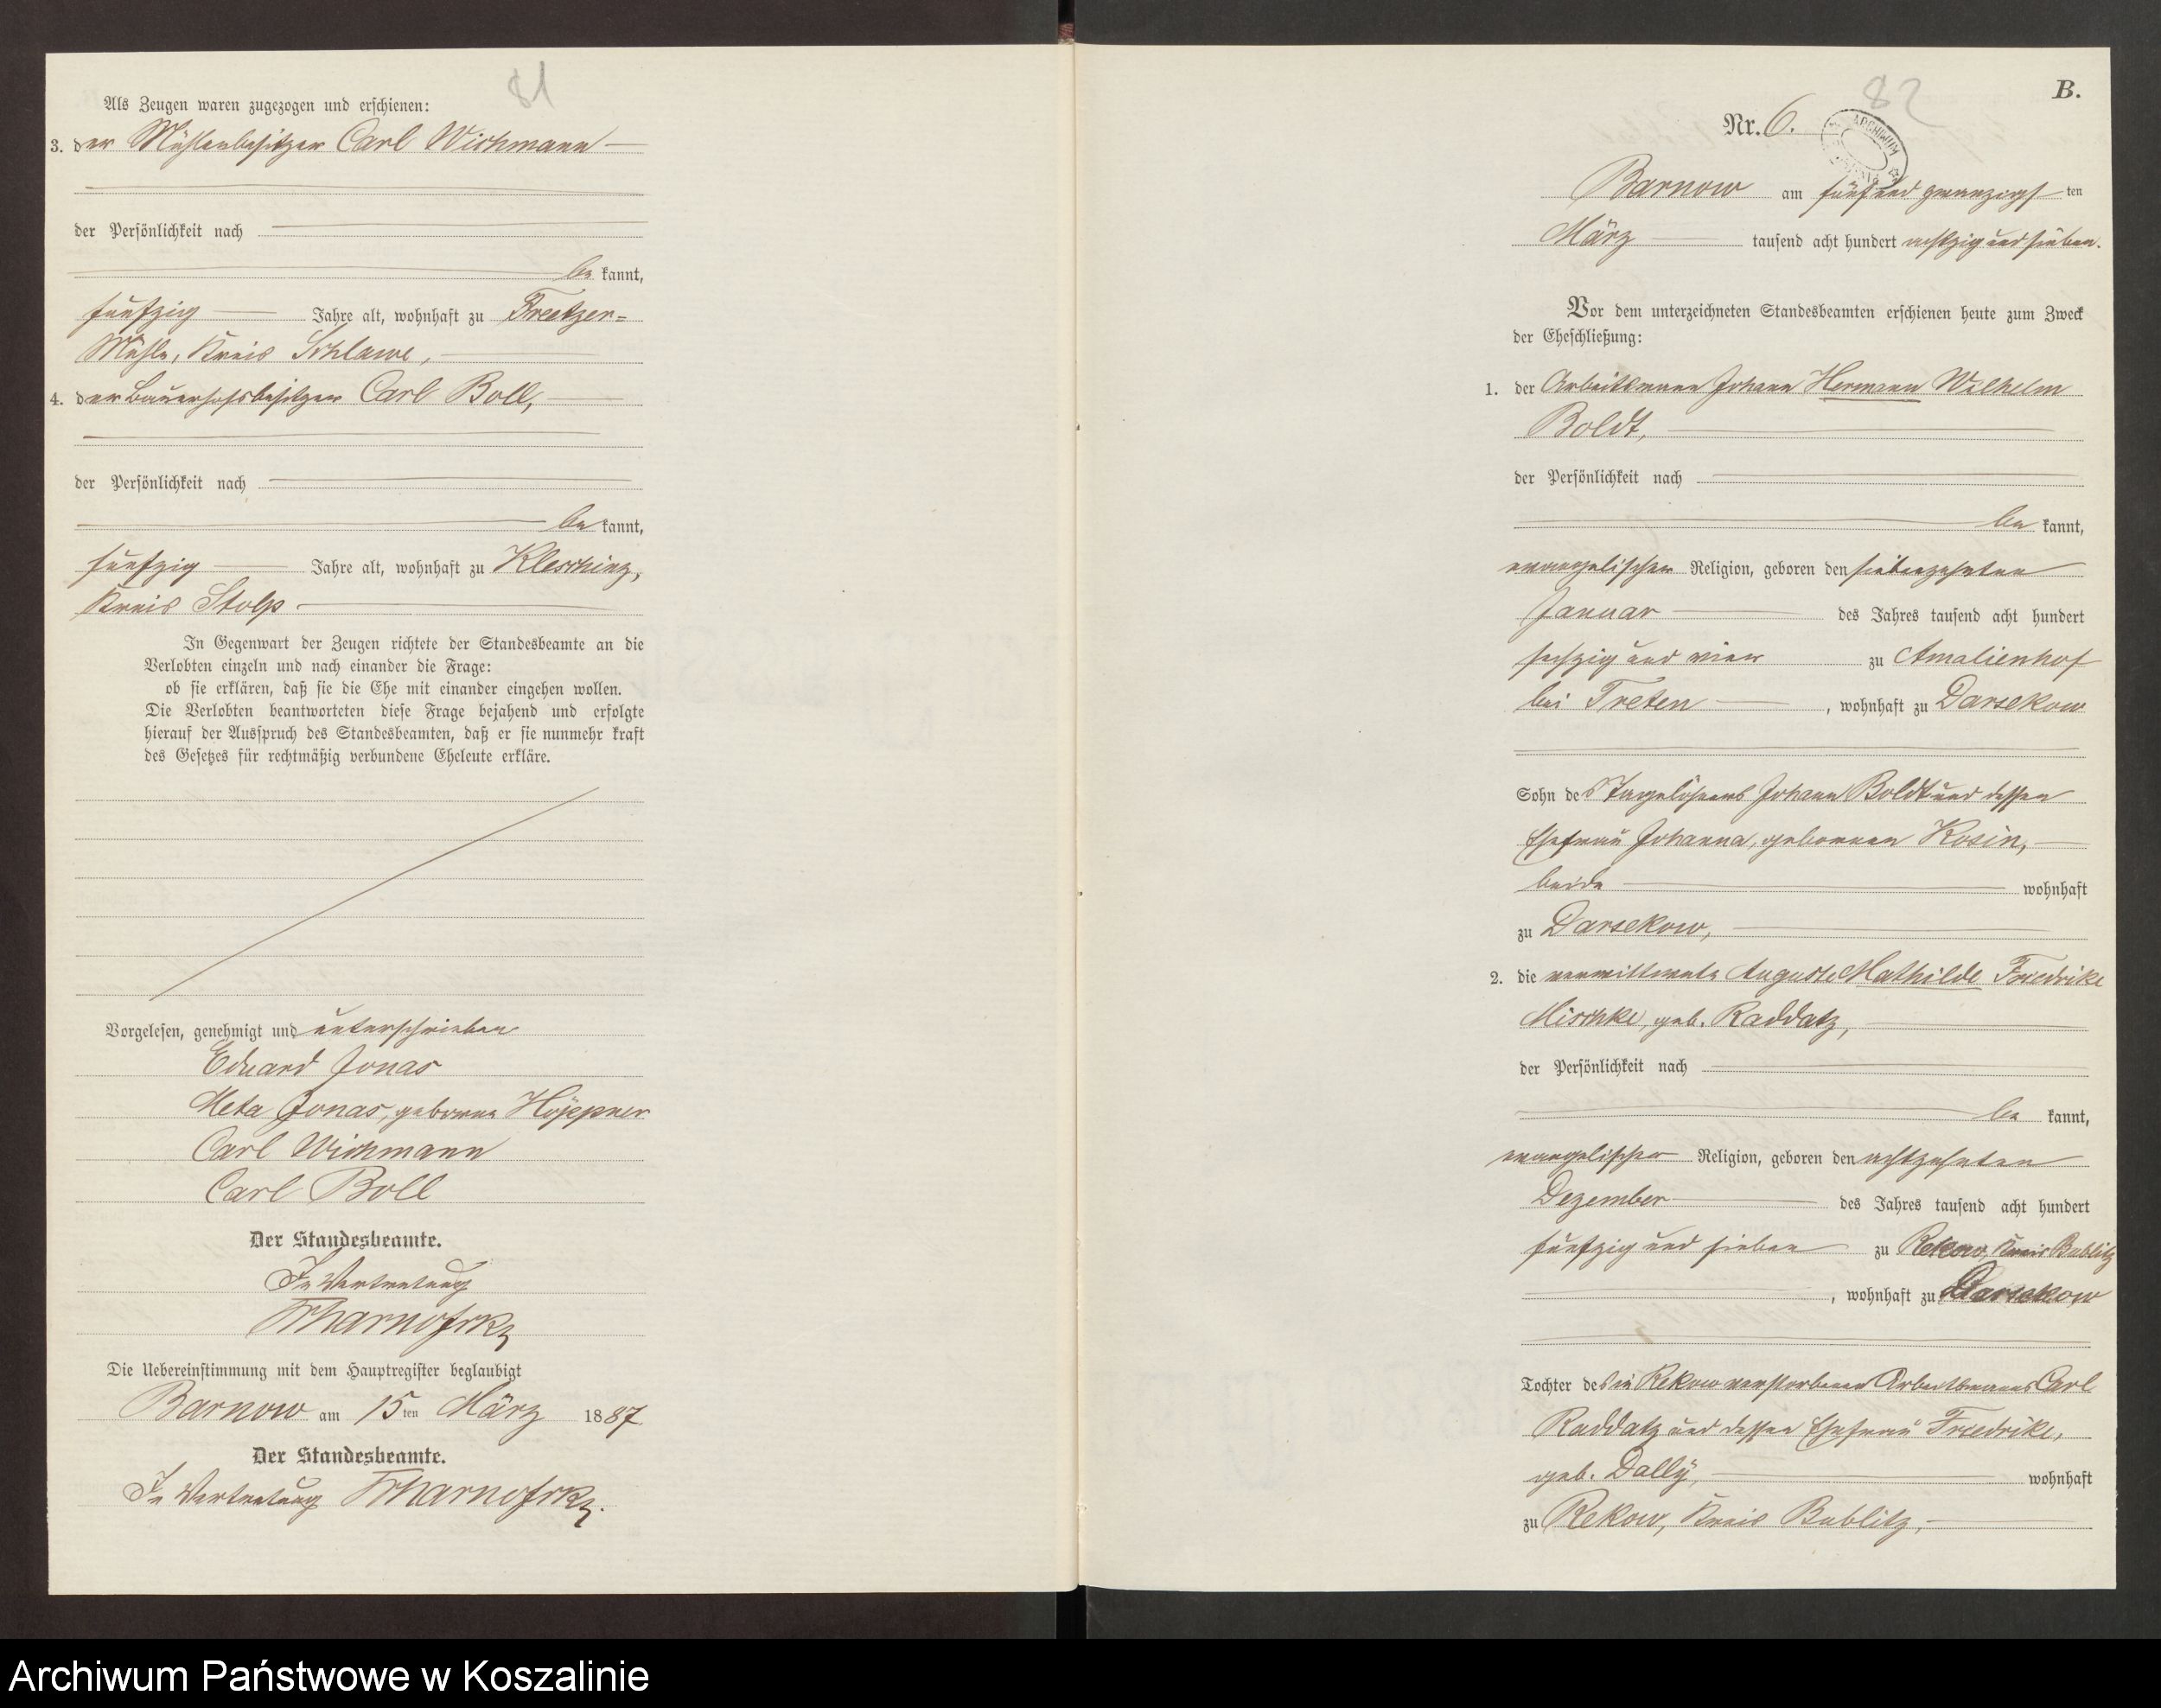 81
Als Zeugen waren zugezogen und erschienen:
3. der Mühlenbesitzer Carl Wichmann
der Persönlichkeit nach
be kannt,
fünfzig Jahre alt, wohnhaft zu Treetzer-
Mühle, Kreis Schlawe,
4. der Bauerhofsbesitzer Carl Boll,
der Persönlichkeit nach
be kannt,
fünfzig Jahre alt, wohnhaft zu Kleschinz,
Kreis Stolp
In Gegenwart der Zeugen richtete der Standesbeamte an die
Verlobten einzeln und nach einander die Frage:
ob sie erklären, daß sie die Ehe mit einander eingehen wollen.
Die Verlobten beantworteten diese Frage bejahend und erfolgte
hierauf der Ausspruch des Standesbeamten, daß er sie nunmehr kraft
des Gesetzes für rechtmäßig verbundene Eheleute erkläre.
Vorgelesen, genehmigt und unterschrieben
Eduard Jonas
Meta Jonas, geborne Höppner
Carl Wichmann
Carl Boll
Der Standesbeamte.
In Vertretung
Die Uebereinstimmung mit dem Hauptregister beglaubigt
Barnow am 15ten März 1887.
Der Standesbeamte.
In Vertretung
82
B.
Nr. 6.
ARCHIWUM
Barnow am fünfundzwanzigsten
März tausend acht hundert achtzig und sieben.
Vor dem unterzeichneten Standesbeamten erschienen heute zum Zweck
der Eheschließung:
1. der Arbeitsmann Johann Hermann Wilhelm
Boldt,
der Persönlichkeit nach
be kannt,
evangelischer Religion, geboren den siebenzehnten
Januar des Jahres tausend acht hundert
sechzig und vier zu Amalienhof
bei Treten, wohnhaft zu Darsekow
Sohn des Tagelöhners Johann Boldt und dessen
Ehefrau Johanna, geborenen Kosin,
beide wohnhaft
zu Darsekow,
2. die verwittwete Auguste Mathilde Friedrike
Mischke, geb. Raddatz,
der Persönlichkeit nach
be kannt,
evangelischer Religion, geboren den achtzehnten
Dezember des Jahres tausend acht hundert
fünfzig und sieben zu Rekow, Kreis Bublitz
, wohnhaft zu Darsekow
Tochter des in Rekow verstorbenen Arbeitsmanns Carl
Raddatz und dessen Ehefrau Friedrike,
geb. Dally, wohnhaft
zu Rekow, Kreis Bublitz,
Archiwum Państwowe w Koszalinie